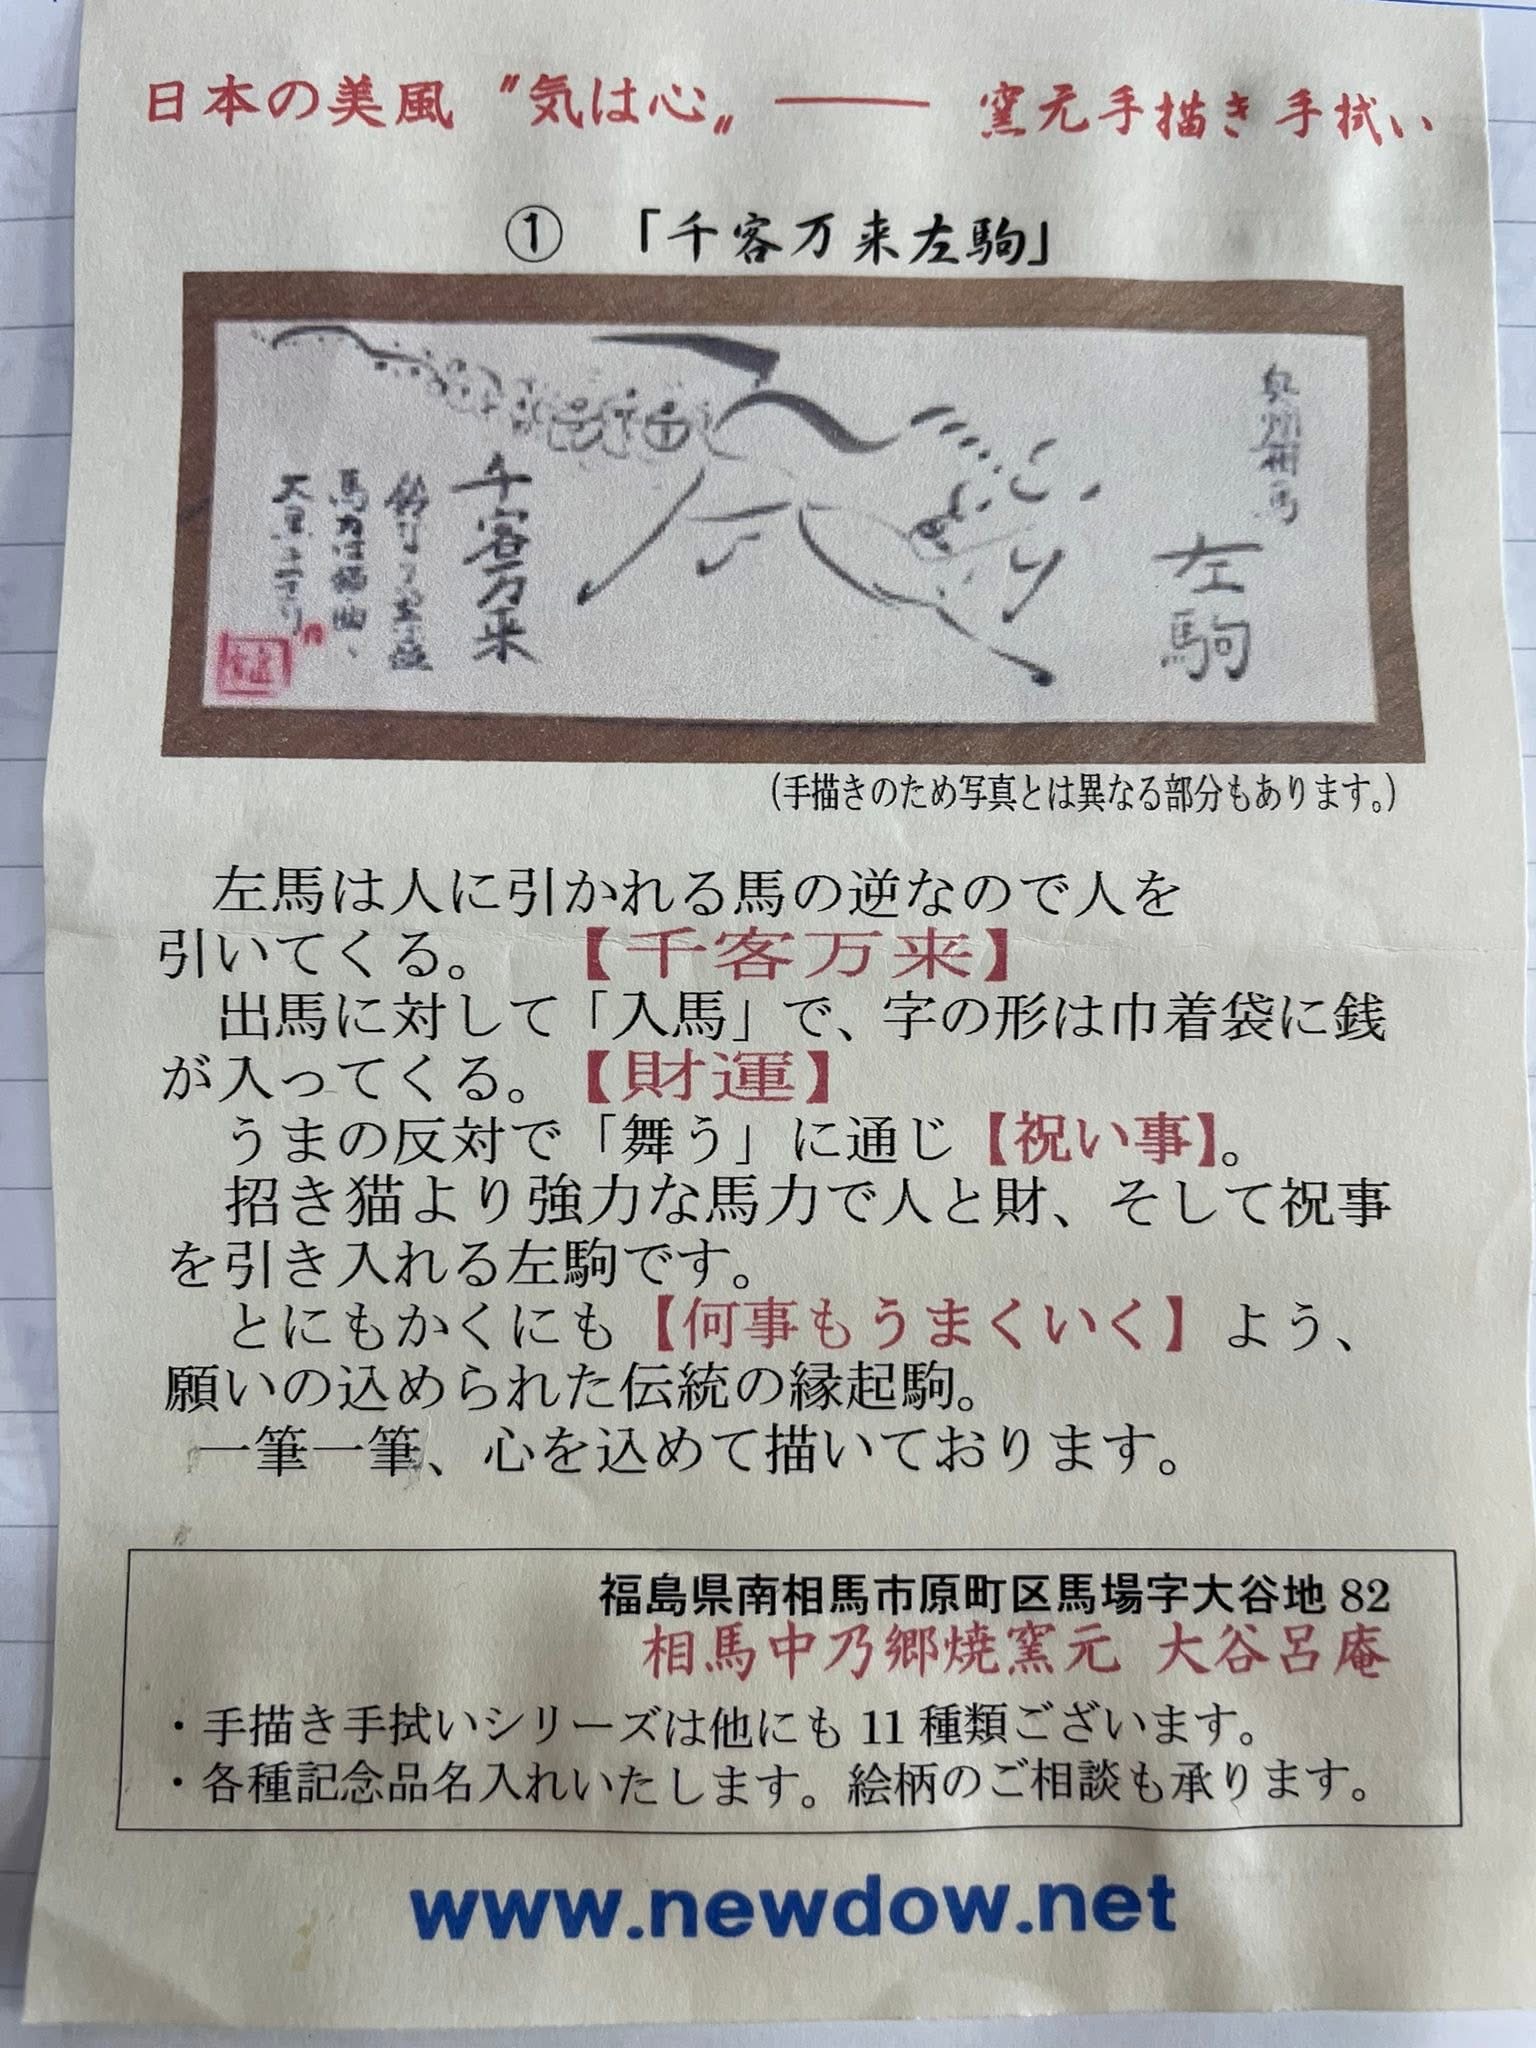 日本の美風〝気は心〟―― 窯元手描き手拭い
① 「千客万来左駒」
左駒
千客万来
(手描きのため写真とは異なる部分もあります。)
左馬は人に引かれる馬の逆なので人を
引いてくる。 【千客万来】
出馬に対して「入馬」で、字の形は巾着袋に銭
が入ってくる。【財運】
うまの反対で「舞う」に通じ【祝い事】。
招き猫より強力な馬力で人と財、そして祝事
を引き入れる左駒です。
とにもかくにも【何事もうまくいく】よう、
願いの込められた伝統の縁起駒。
一筆一筆、心を込めて描いております。
福島県南相馬市原町区馬場字大谷地 82
相馬中乃郷焼窯元 大谷呂庵
・手描き手拭いシリーズは他にも 11 種類ございます。
・各種記念品名入れいたします。絵柄のご相談も承ります。
www.newdow.net